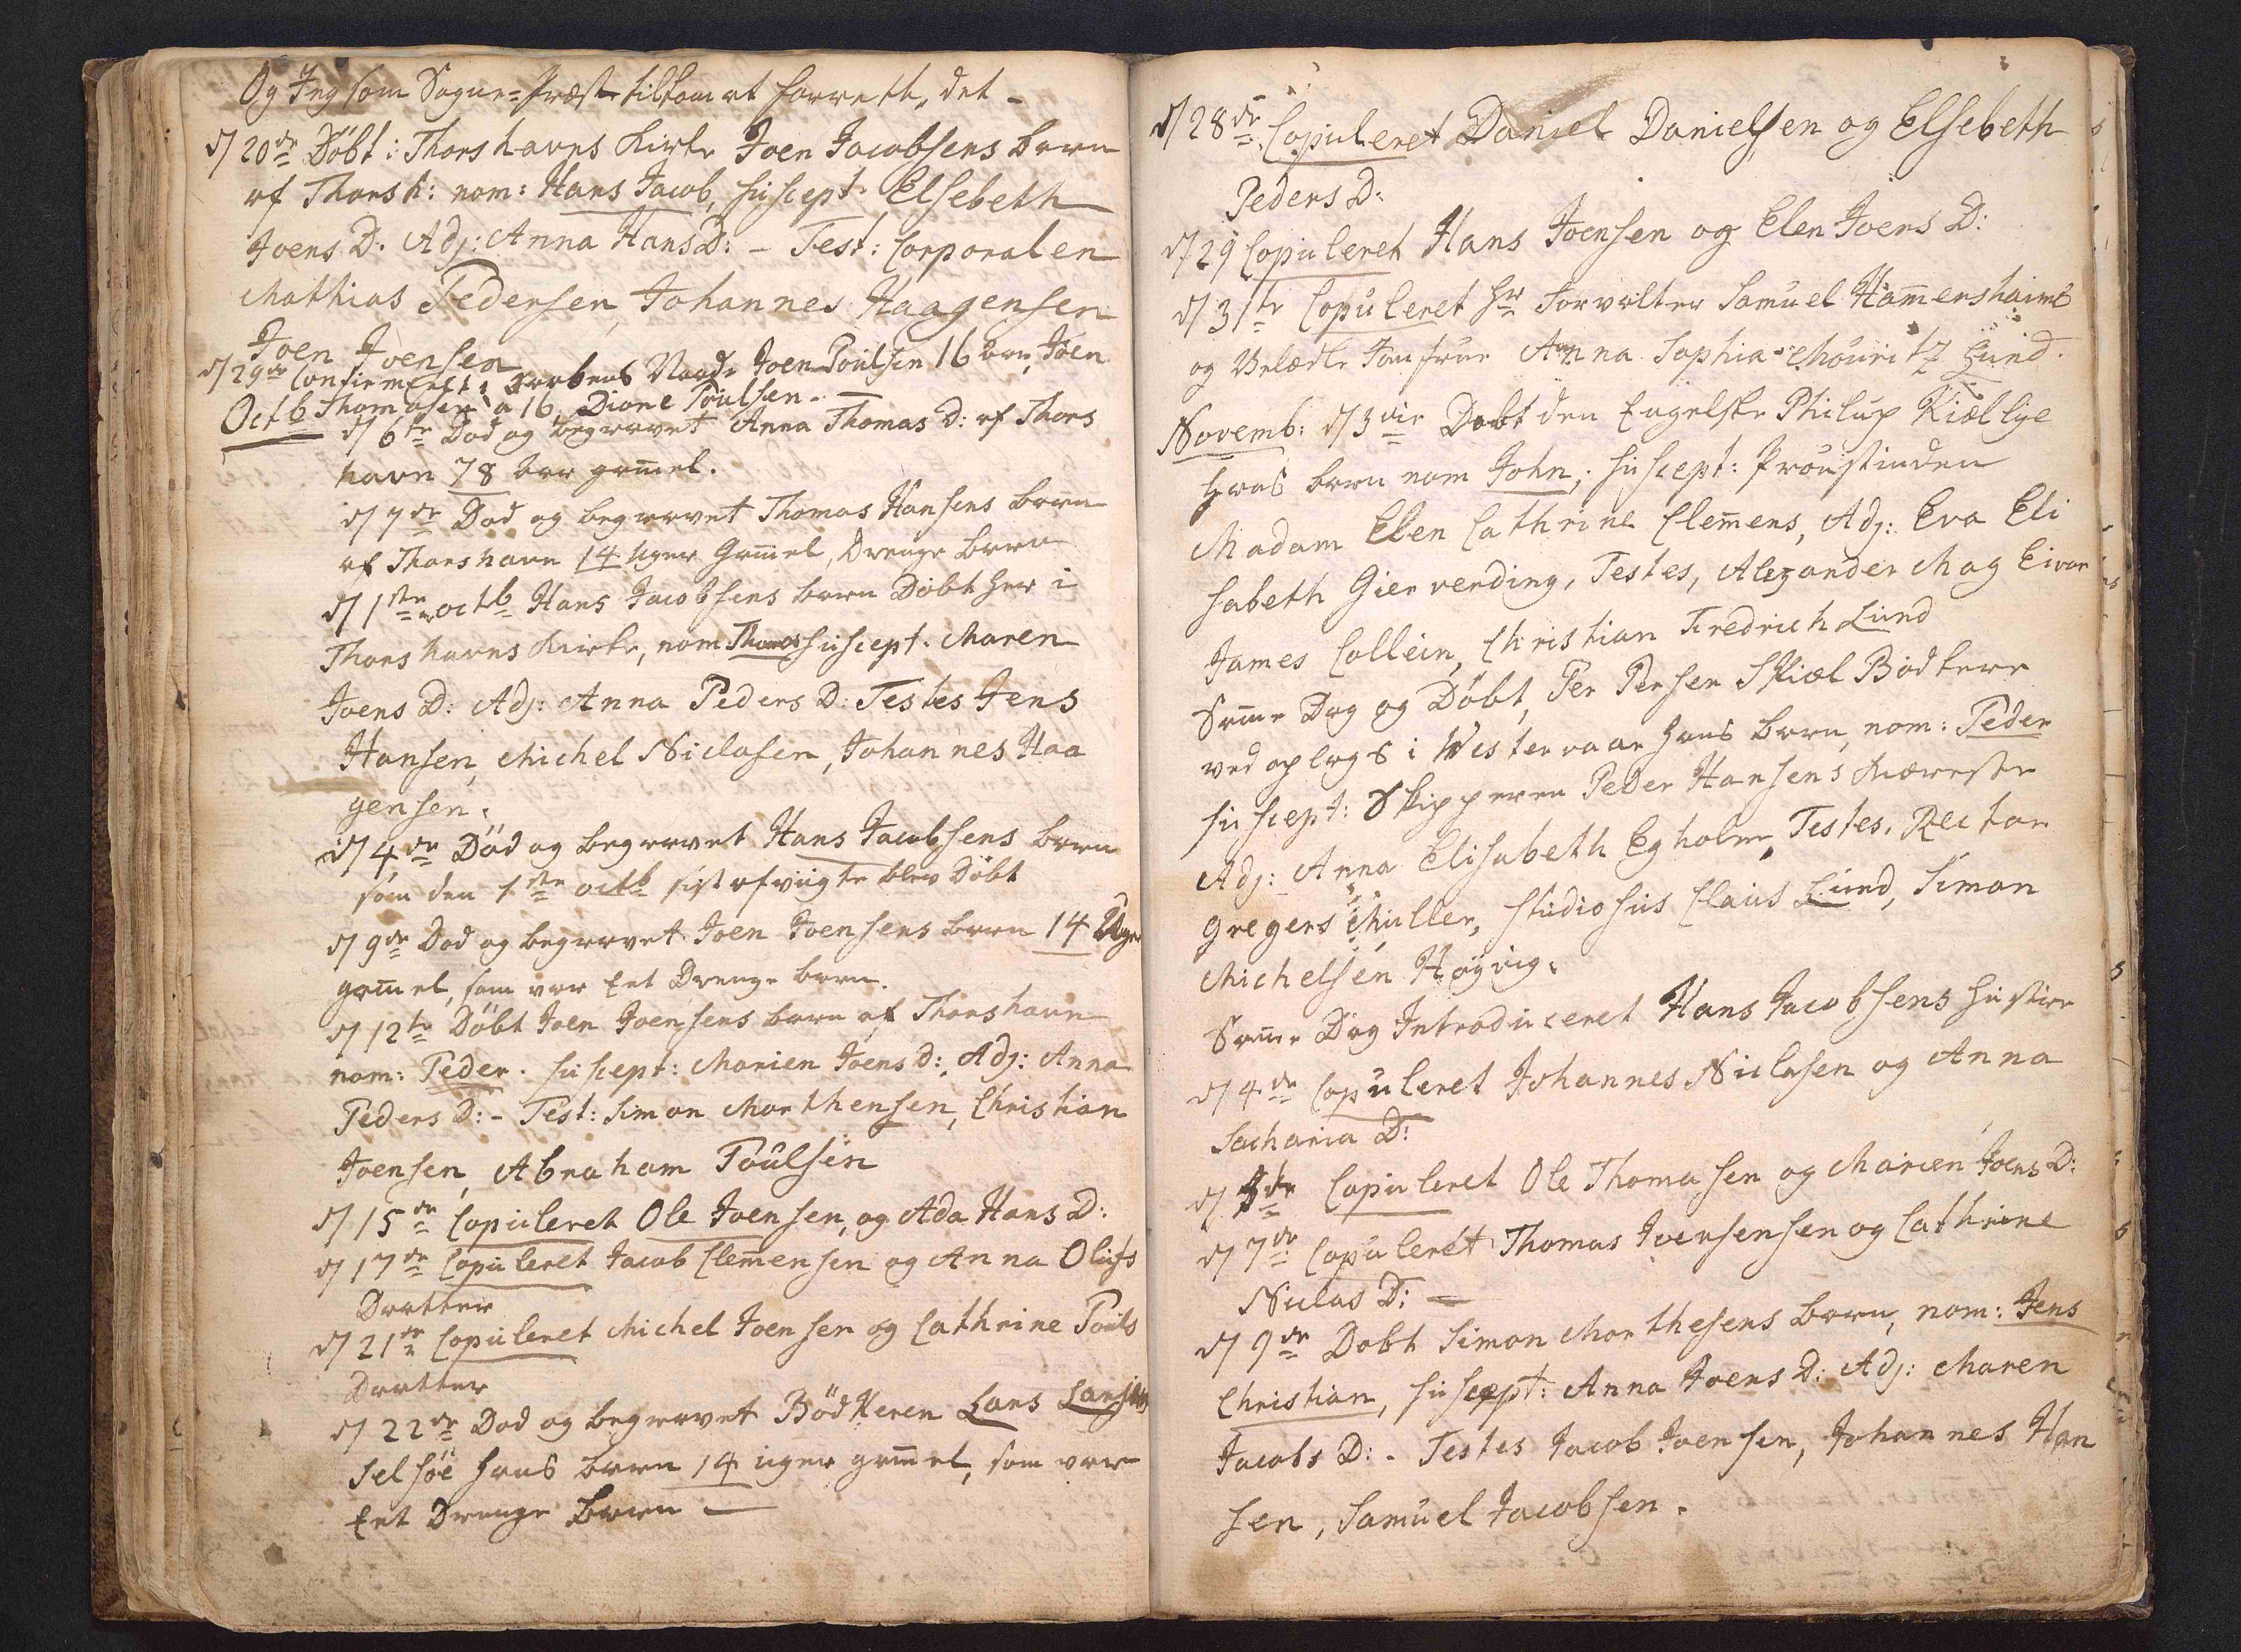 Og Jeg som Sogne-Præst tilkom at forrette det -
d/ 20de Döbt i Thorshavns Kirke Joen Jacobsens barn
af Thorsh: nom: Hans Jacob, suscept: Elsebeth
Joens D: Adj: Anna Hans D: - Test: Corporalen
Mathias Pedersen, Johannes Haagensen
Joen Joensen
d/ 29de Confirmeret Joen Poulsen 16 aar, Joen
Thomasen a 16, Dione Poulsen. -
Octb d/ 6te Död og begravet Anna Thomas D: af Thors
havn 78 aar gam̄el.
d/ 7de Död og begravet Thomas Hansens barn
af Thorshavn 14 uger Gam̄el, Drenge barn
d/ 1ste octb Hans Jacobsens barn Döbt her i
Thorshavns Kirke, nom: Thomas suscept: Maren
Joens D: Adj: Anna Peders D: Testes Jens
Hansen, Michel Niclasen, Johannes Haa
gensen.
d/ 4de Död og begravet Hans Jacobsens barn
som den 1ste octb sist afvigte blev Döbt
d/ 9de Död og begravet Joen Joensens barn 14 Uger
gam̄el, som var Eet Drenge barn.
d/ 12te Döbt Joen Joensens barn af Thorshavn
nom: Peder. suscept: Marien Joens D: Adj: Anna
Peders D: - Test: Simon Morthensen, Christian
Joensen, Abraham Poulsen
d/ 15de Copuleret Ole Joensen, og Ada Hans D:
d/ 17de Copuleret Jacob Clem̄ensen og Anna Olufs
Daatter
d/ 21de Copuleret Michel Joensen og Cathrine Pouls
Daatter
d/ 22de Död og begravet Bödkeren Lars Larsens
Selsöe hans barn 14 uger gam̄el, som var
Eet Drenge Barn -
d/ 28de Copuleret Daniel Danielsen og Elsebeth
Peders D:
d/ 29 Copuleret Hans Joensen og Elen Joens D:
d/ 31te Copuleret Hr Forvalter Samuel Ham̄ershaimb
og Velædle Jomfrue Anna Sophia Mouritz Hund.
Novemb: d/ 3die Döbt den Engelske Philup Kiællye
hans barn nom John, suscept: Proustinden
Madam Elen Cathrine Clem̄ens, Adj: Eva Eli
sabeth Gierverding, Testes, Alexander Mag Eivor
James Collein, Christian Fredrich Lund
Sam̄e Dag og Döbt, Per Persen Skiæl Bödkere
ved oplags i Westervaag hans barn, nom: Peder
suscept: Skipperen Peder Hansens Kiæreste
Adj: Anna Elisabeth Egholm, Testes, Rector
Gregers Muller, studiosus Claus Lund, Simon
Michelsen Höyvig.
Sam̄e Dag Introduceret Hans Jacobsens Hustroe
d/ 4de Copuleret Johannes Niclasen og Anna
Sacharia D:
d/ 5te Copuleret Ole Thomasen og Marien Joens D:
d/ 7de Copuleret Thomas Joensensen og Cathrine
Niclas D: -
d/ 9de Döbt Simon Morthesens barn, nom: Jens
Christian, suscept: Anna Joens D: Adj: Maren
Jacobs D: - Testes Jacob Joensen, Johannes Han
sen, Samuel Jacobsen.